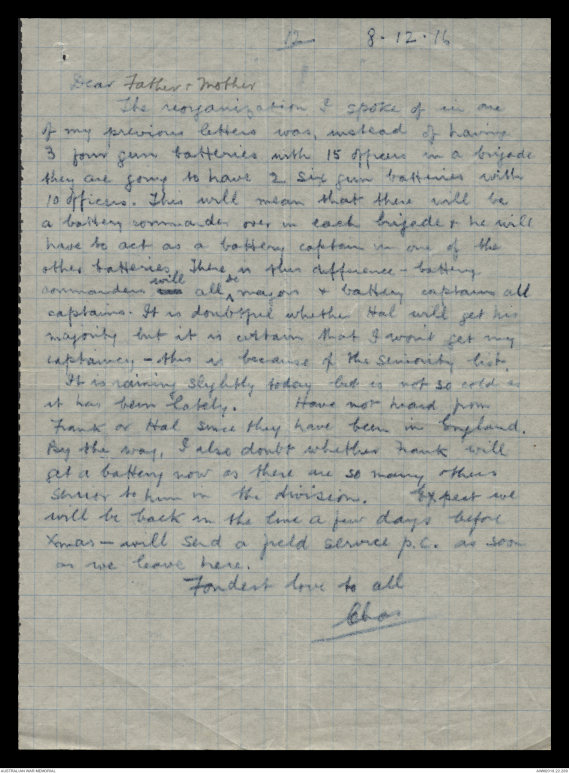 12 8.12.16
Dear Father & Mother
The reorganization I spoke of in one
of my previous letters was, instead of having
3 four gun batteries with 15 officers in a brigade
they are going to have 2 six gun batteries with
10 officers. This will mean that there will be
a battery commander over in each brigade & he will
have to act as a battery captain in one of the
other batteries. There is this difference - battery
commanders will all be majors & battery captains all
captains. It is doubtful whether Hal will get his
majority but it is certain that I won't get my
captaincy - this is because of the seniority list.
It is raining slightly today but is not so cold as
it has been lately. Have not heard from
Frank or Hal since they have been in England.
By the way, I also doubt whether Frank will
get a battery now as there are so many others
senior to him in the division. Expect we
will be back in the line a few days before
Xmas - will send a field service p.c. as soon
as we leave here.
Fondest love to all
Chas
AUSTRALIAN WAR MEMORIAL